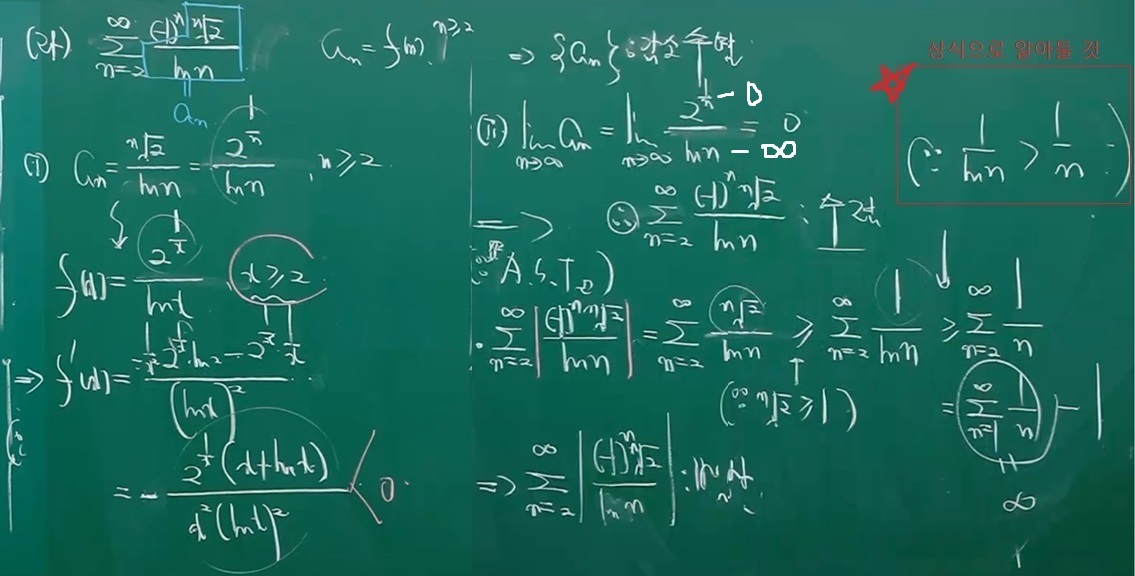 (라) \sum_{n=2}^{\infty} \frac{(-1)^n \sqrt[n]{2}}{\ln n}
a_n
(i) a_n = \frac{\sqrt[n]{2}}{\ln n} = \frac{2^{\frac{1}{n}}}{\ln n}, n ≥ 2
f(x) = \frac{2^{\frac{1}{x}}}{\ln x} x ≥ 2
=> f'(x) = \frac{-\frac{1}{x^2} 2^{\frac{1}{x}} \cdot \ln 2 - 2^{\frac{1}{x}} \cdot \frac{1}{x}}{(\ln x)^2}
= - \frac{2^{\frac{1}{x}} (x + \ln x)}{x^2 (\ln x)^2} < 0
a_n = f(n), n ≥ 2 => {a_n} : 감소수열
(ii) \lim_{n→∞} a_n = \lim_{n→∞} \frac{2^{\frac{1}{n}}}{\ln n} = 0
– 0
– ∞
=> ∴ \sum_{n=2}^{\infty} \frac{(-1)^n \sqrt[n]{2}}{\ln n} : 수렴
(∵ A.S.T.)
\sum_{n=2}^{\infty} \left| \frac{(-1)^n \sqrt[n]{2}}{\ln n} \right| = \sum_{n=2}^{\infty} \frac{\sqrt[n]{2}}{\ln n} ≥ \sum_{n=2}^{\infty} \frac{1}{\ln n} ≥ \sum_{n=2}^{\infty} \frac{1}{n}
(∵ \sqrt[n]{2} ≥ 1)
= \sum_{n=1}^{\infty} \frac{1}{n} - 1
∞
=> \sum_{n=2}^{\infty} \left| \frac{(-1)^n \sqrt[n]{2}}{\ln n} \right| : 발산
상식으로 알아둘 것
(∵ \frac{1}{\ln n} > \frac{1}{n} ∵)